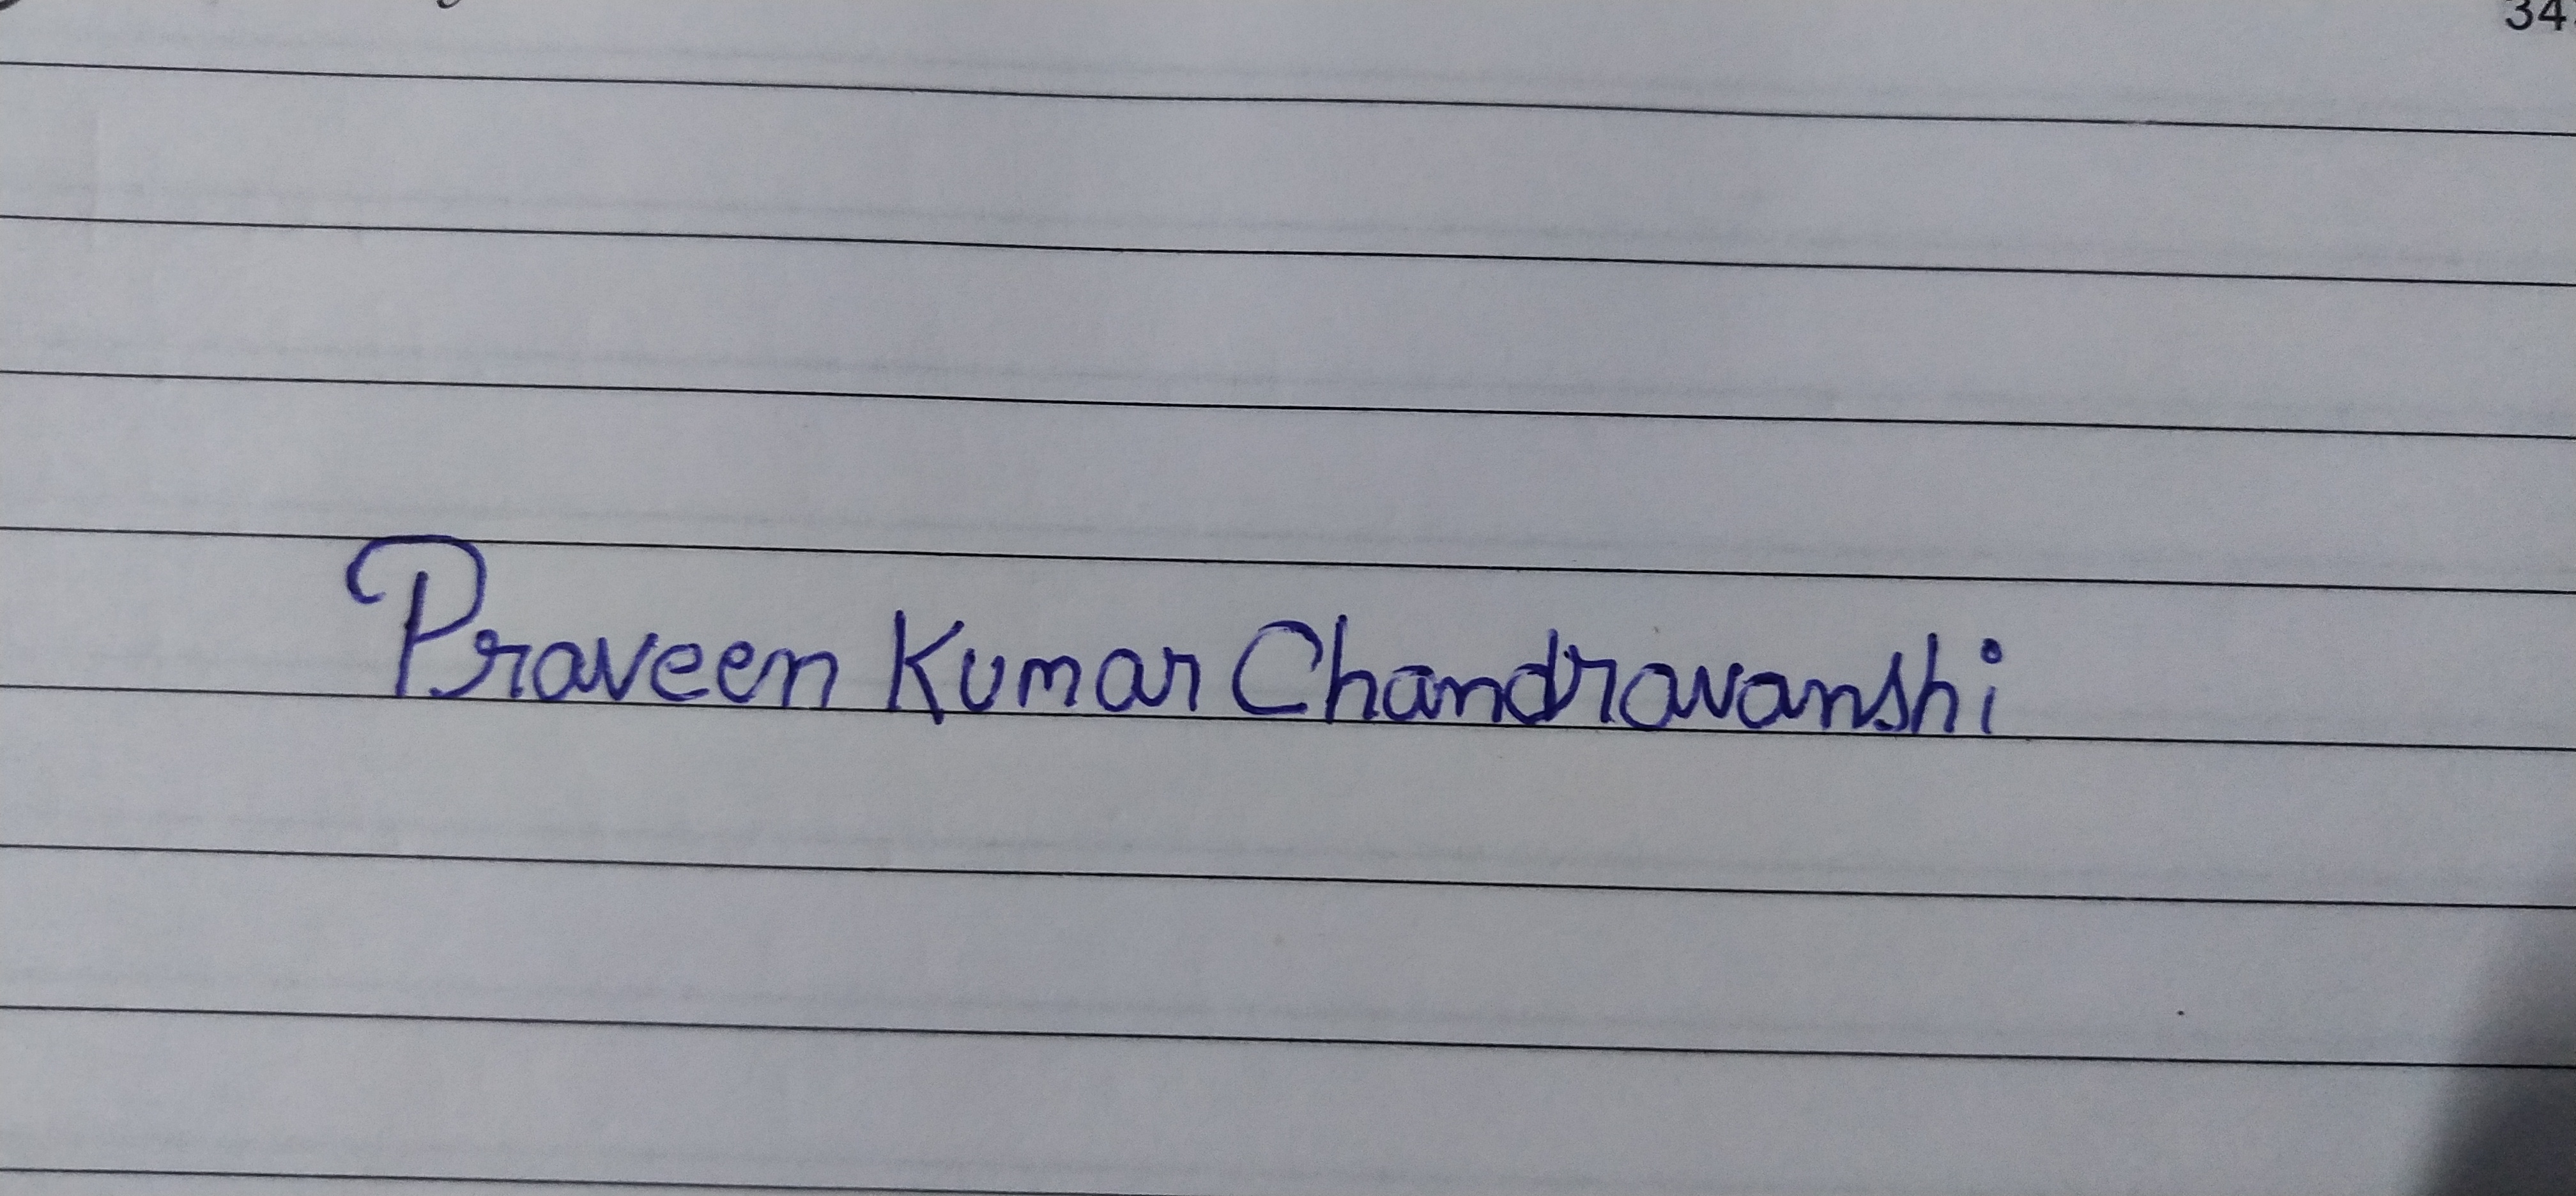 34
Praveen Kumar Chandravanshi